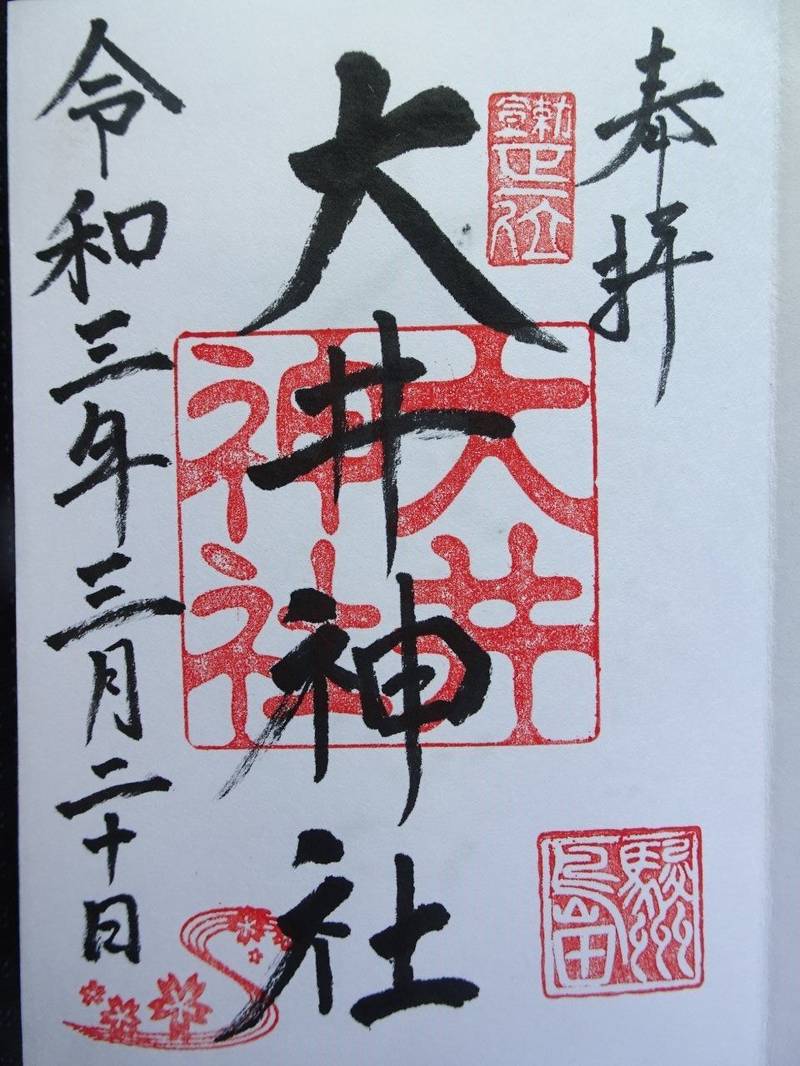 奉拝
勅宣
正一位
駿州
島田
大井神社
大井
神社
令和三年三月二十日